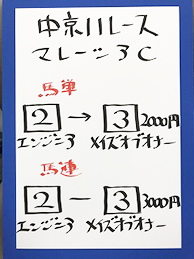 中京11レース
マレーシアC
馬単
2 → 3 2000円
エンジニア メイズオブオナー
馬連
2 － 3 3000円
エンジニア メイズオブオナー